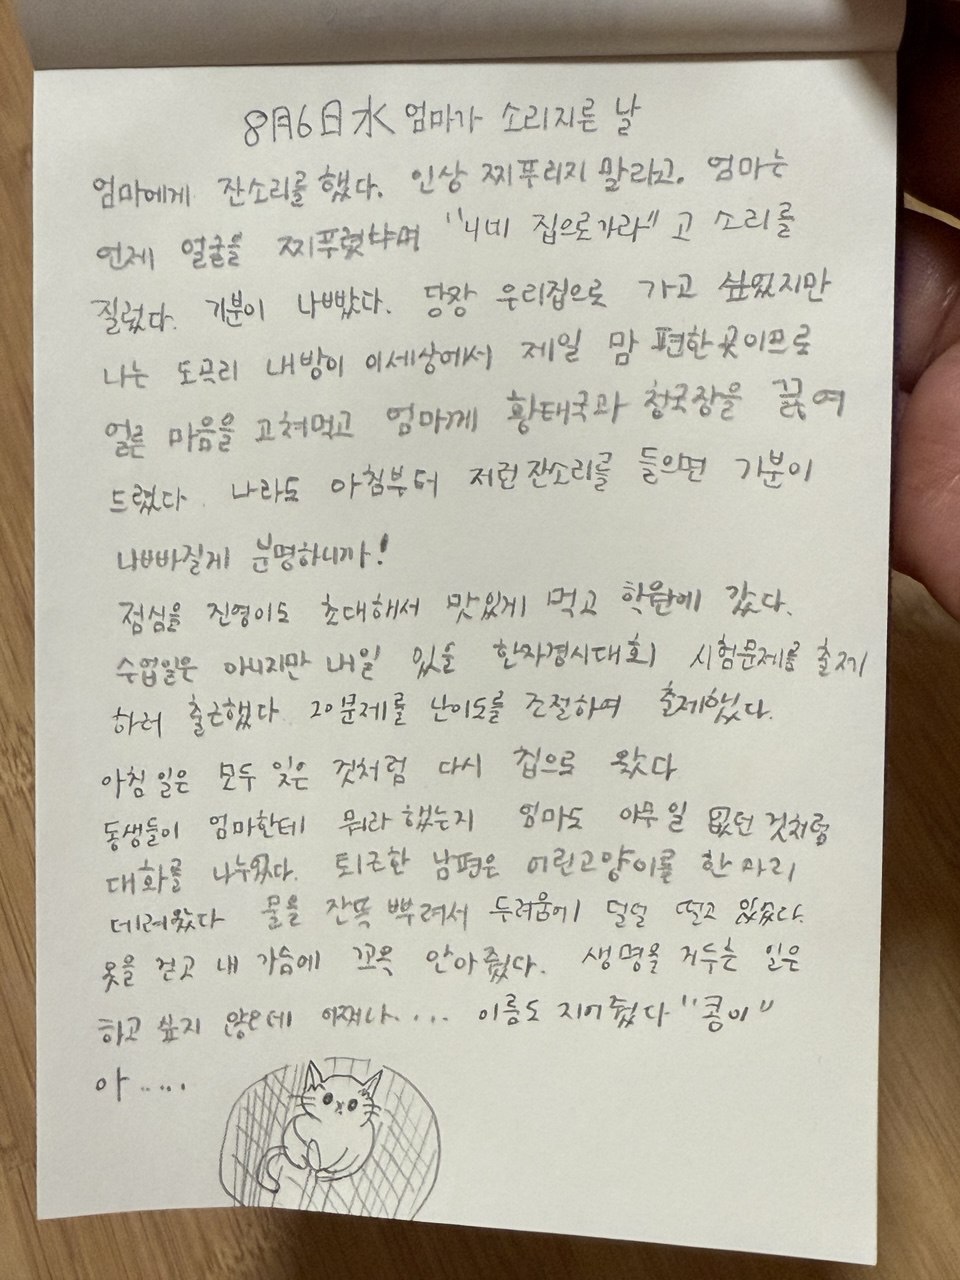 8月6日水 엄마가 소리지른 날
엄마에게 잔소리를 했다. 인상 찌푸리지 말라고. 엄마는
언제 얼굴을 찌푸렸냐며 "니네 집으로가라"고 소리를
질렀다. 기분이 나빴다. 당장 우리집으로 가고 싶었지만
나는 도곡리 내방이 이세상에서 제일 맘 편한 곳이므로
얼른 마음을 고쳐먹고 엄마께 황태국과 청국장을 끓여
드렸다. 나라도 아침부터 저런 잔소리를 들으면 기분이
나빠질게 분명하니까!
점심을 진영이도 초대해서 맛있게 먹고 학원에 갔다.
수업일은 아니지만 내일 있을 한자경시대회 시험문제를 출제
하러 출근했다. 20문제를 난이도를 조절하여 출제했다.
아침 일은 모두 잊은 것처럼 다시 집으로 왔다
동생들이 엄마한테 뭐라 했는지 엄마도 아무일 없던 것처럼
대화를 나누었다. 퇴근한 남편은 어린고양이를 한 마리
데려왔다 물을 잔뜩 뿌려서 두려움에 덜덜 떨고 있었다.
옷을 걷고 내 가슴에 꼬옥 안아줬다. 생명을 거두는 일은
하고 싶지 않은데 어쩌나.... 이름도 지어줬다 "콩이"
아.....